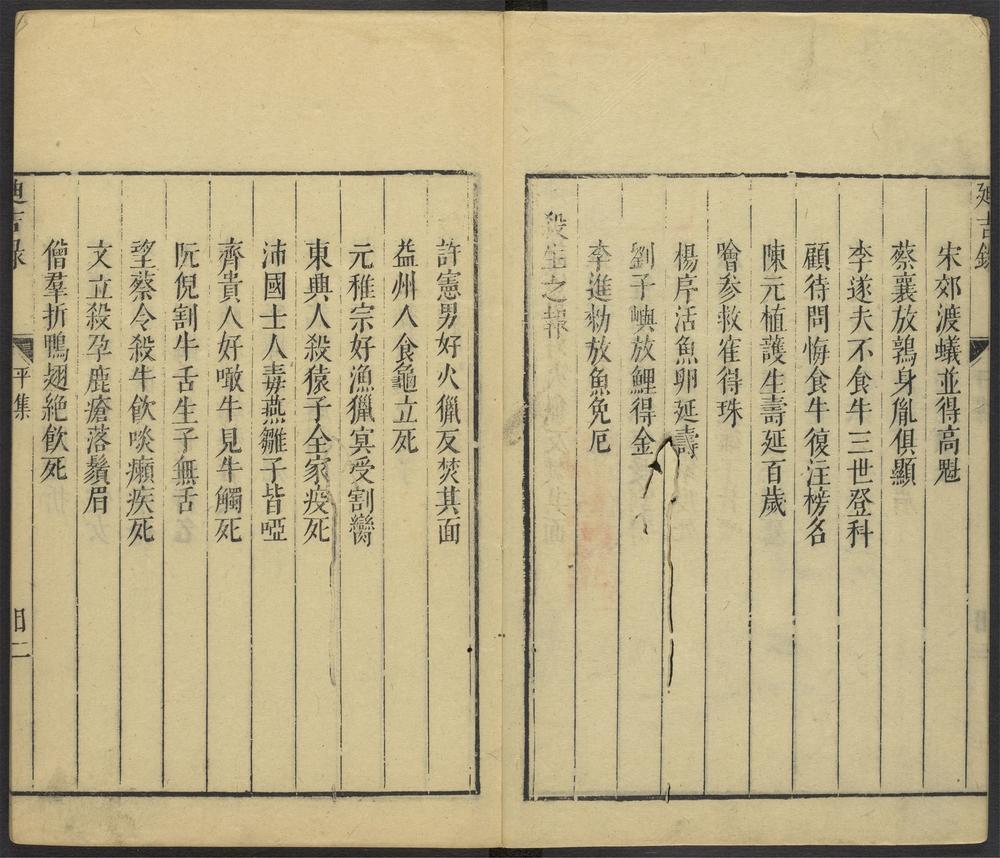 宋郊渡蟻並得高魁
蔡襄放鶉身胤俱顯
李遂夫不食牛三世登科
顧待問悔食牛復注榜名
陳元植護生壽延百歲
噲參救寉得珠
楊序活魚卵延壽
劉子嶼放鯉得金
李進勣放魚免厄
殺生之報
許憲男好火獵反焚其面
益州人食龜立死
元稚宗好漁獵冥受割臠
東興人殺猿子全家疫死
沛國士人毒燕雛子皆啞
齊貴人好噉牛見牛觸死
阮倪割牛舌生子無舌
望蔡令殺牛飲啖癩疾死
文立殺孕鹿瘡落鬚眉
僧羣折鴨翅絶飲死
迪吉録
平集
目二